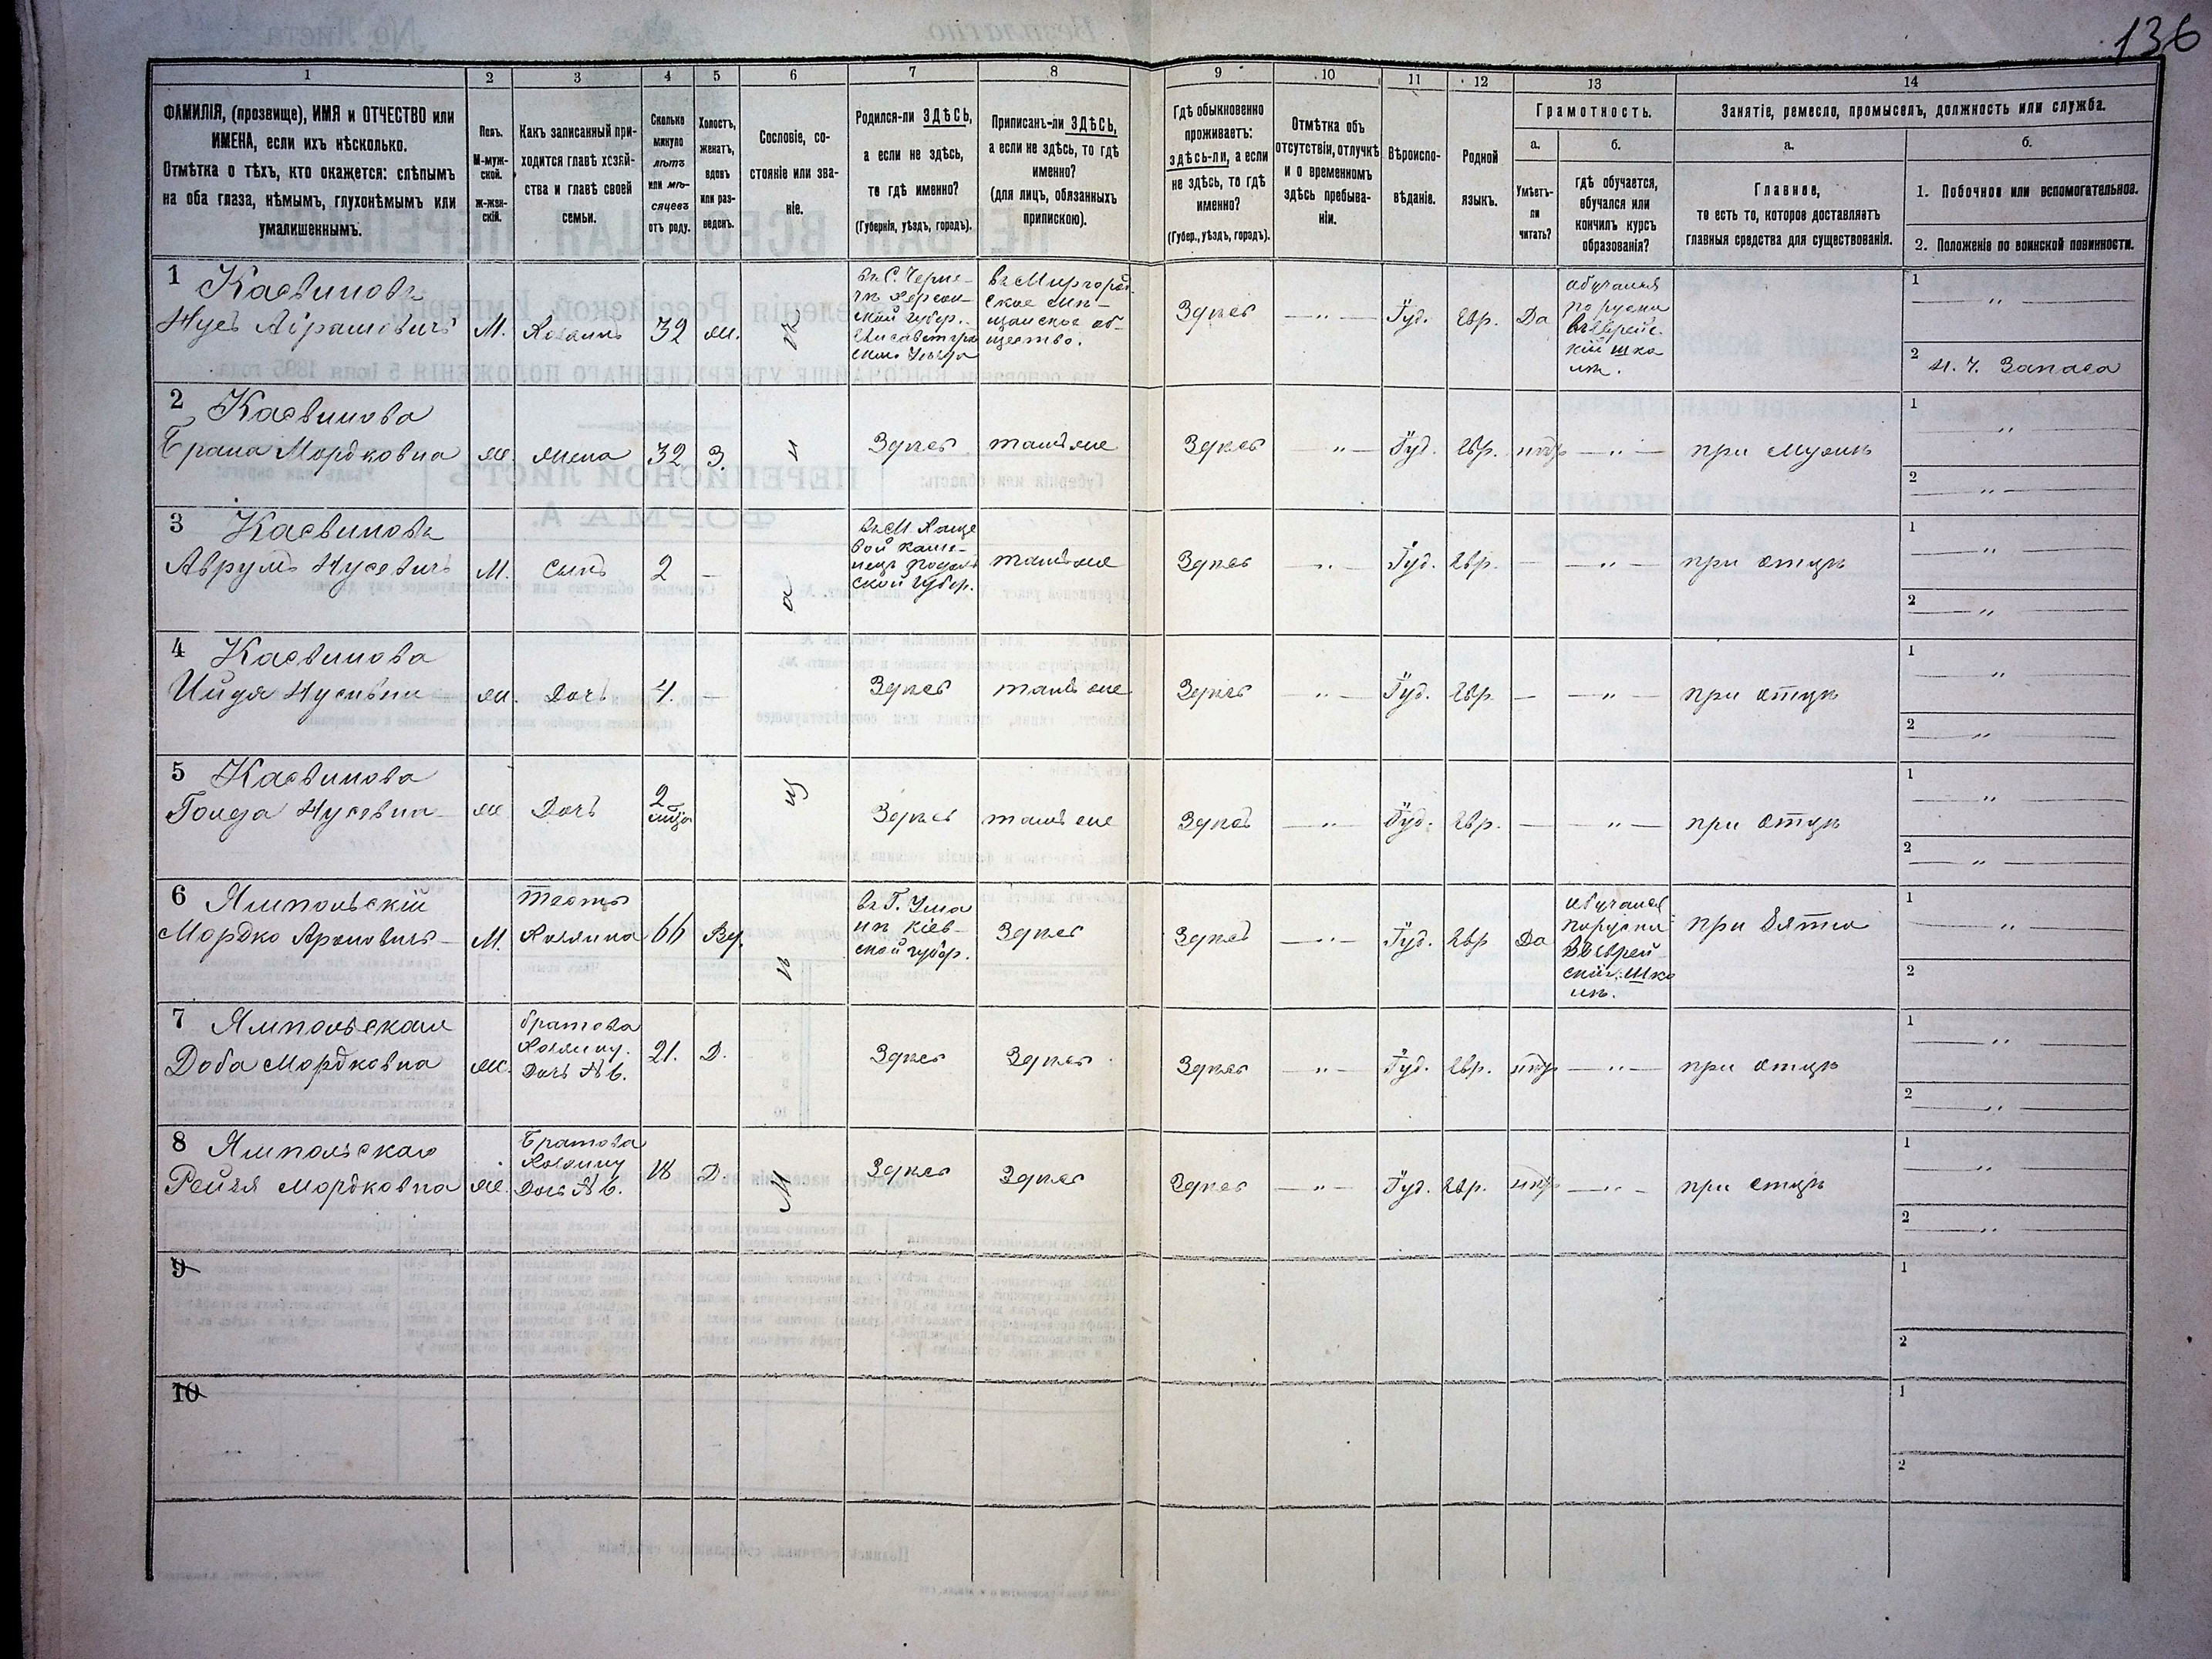 136
1
2
3
4
5
6
7
8
9
10
11
12
13
14
ФАМИЛІЯ, (прозвище), ИМЯ и ОТЧЕСТВО или
ИМЕНА, если ихъ нѣсколько.
Отмѣтка о тѣхъ, кто окажется: слѣпымъ
на оба глаза, нѣмымъ, глухонѣмымъ или
умалишеннымъ.
Полъ.
М-муж-
ской.
ж-жен-
скій.
Какъ записанный при-
ходится главѣ хозяй-
ства и главѣ своей
семьи.
Сколько
минуло
лѣтъ
или мѣ-
сяцевъ
отъ роду.
Холостъ,
женатъ,
вдовъ
или раз-
веденъ.
Сословіе, со-
стояніе или зва-
ніе.
Родился-ли ЗДѢСЬ,
а если не здѣсь,
то гдѣ именно?
(Губернія, уѣздъ, городъ).
Приписанъ-ли ЗДѢСЬ,
а если не здѣсь, то гдѣ
именно?
(для лицъ, обязанныхъ
припискою).
Гдѣ обыкновенно
проживаетъ:
здѣсь-ли, а если
не здѣсь, то гдѣ
именно?
(Губер., уѣздъ, городъ).
Отмѣтка объ
отсутствіи, отлучкѣ
и о временномъ
здѣсь пребыва-
ніи.
Вѣроиспо-
вѣданіе.
Родной
языкъ.
Грамотность.
а.
Умѣетъ-
ли
читать?
б.
гдѣ обучается,
обучался или
кончилъ курсъ
образованія?
Занятіе, ремесло, промыселъ, должность или служба.
а.
Главное,
то есть то, которое доставляетъ
главныя средства для существованія.
б.
1. Побочное или вспомогательное.
2. Положеніе по воинской повинности.
1 Касвиновъ
Нусь Абрамовичъ
М.
Хозяинъ
32
ж.
въ С. Черне-
чъ Херсон-
ской губер.
Елисаветград
скаго Уѣзда
въ Миргород-
ское мѣ-
щанское об-
щество.
Здѣсь
— " —
Іуд.
Евр.
Да
обучался
по руски
въ еврейс-
кій шко
лѣ.
1 "
2 н. ч. Запаса
2 Касвинова
Брана Мордковна
ж
жена
32
З.
Здѣсь
тамъ же
Здѣсь
" —
Іуд.
Евр.
— " —
при Мужѣ
1 "
2 "
3 Касвиновъ
Аврумъ Нусевичъ
М.
Сынъ
2
—
ской губер.
тамъ же
Здѣсь
— " —
Іуд.
Евр.
—
— " —
при отцѣ
1 "
2 "
4 Касвинова
Ийдя Нусивна
ж.
Дочь
4.
—
Здѣсь
тамъ же
Здѣсь
— " —
Іуд.
Евр.
—
— " —
при отцѣ
1 "
2 "
5 Касвинова
Голда Нусевна
ж
Дочь
2
мѣца
Здѣсь
тамъ же
Здѣсь
— " —
Іуд.
Евр.
—
— " —
при отцѣ
1 "
2 "
6 Ямпольскій
Мордко Ароновичъ
М.
Тесть
Хозяина
66
Вд.
въ Г. Ума
нѣ Кіев-
ской губер.
Здѣсь
Здѣсь
— " —
Іуд.
Евр
Да
обучался
по руски
въ еврей-
скій шко
лѣ.
при Зятю
1 "
2
7 Ямпольская
Доба Мордковна
ж.
Хозяину.
Дочь № 6.
21.
Д.
Здѣсь
Здѣсь
Здѣсь
" —
Іуд.
Евр.
— " —
при отцѣ
1 "
2 "
8 Ямпольская
Рейзя Мордковна
ж.
Хозяину
Дочь № 6.
18
Д.
Здѣсь
Здѣсь
Здѣсь
— " —
Іуд.
Евр.
— " —
при отцѣ
1 "
2 "
9
1
2
10
1
2